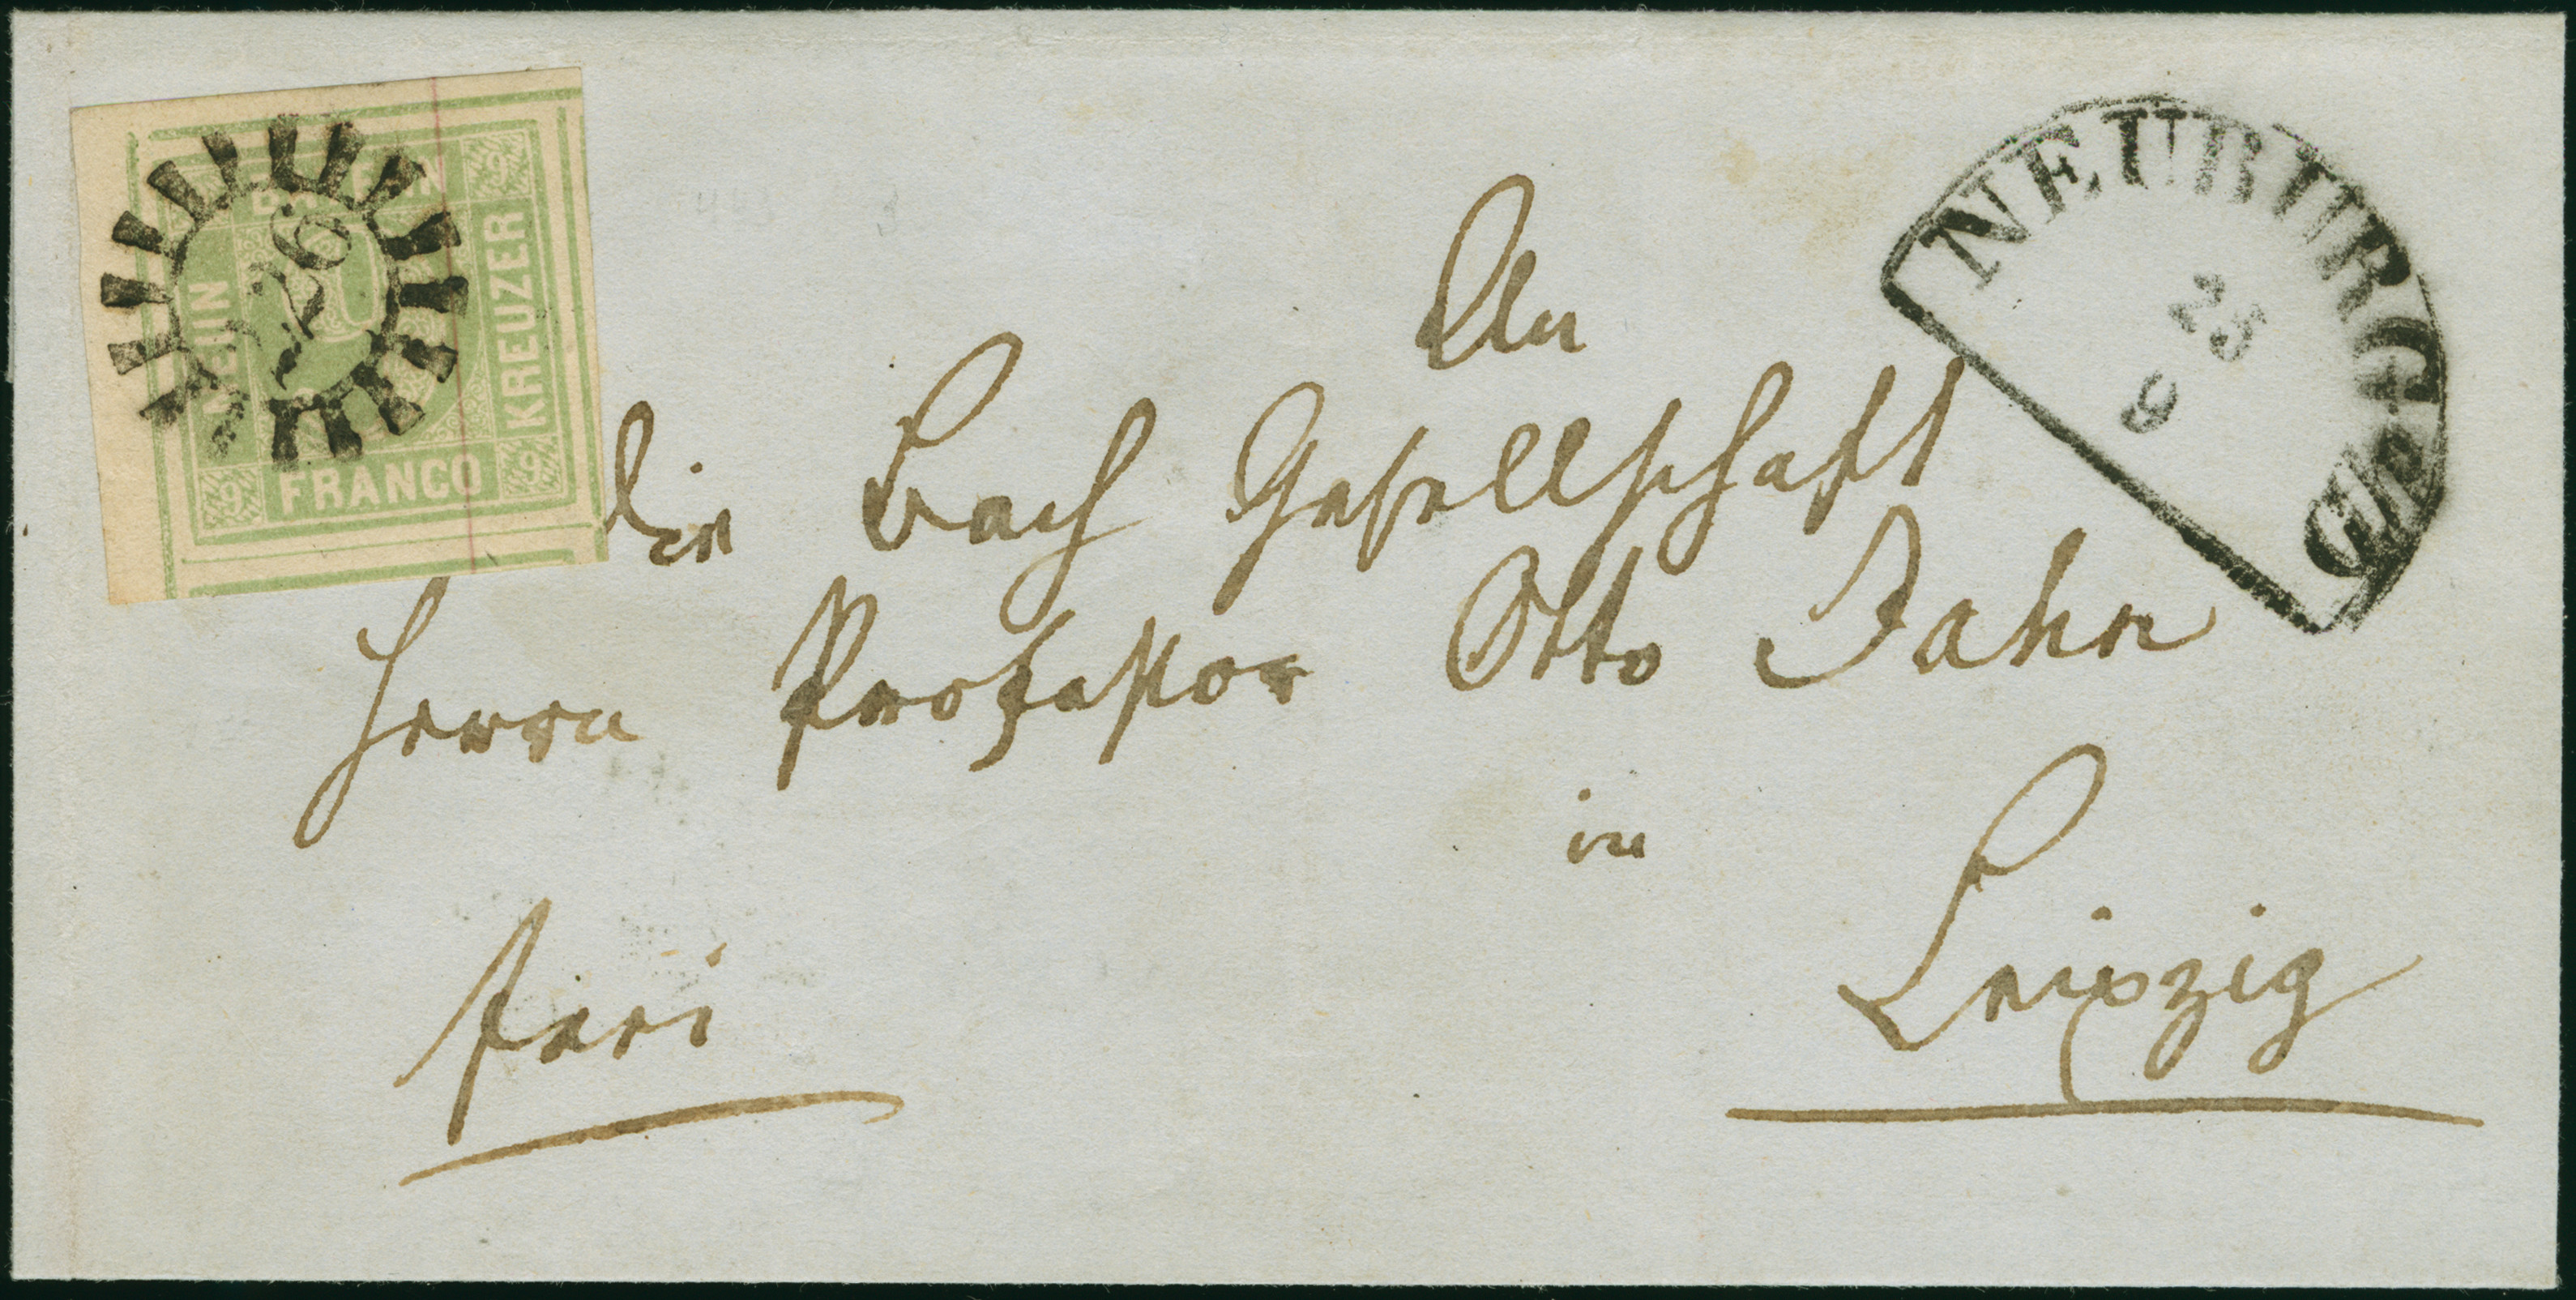 BAYERN
9
9
9
KREUZER
FRANCO
226
NEUBURG A/D
25
9
An
die Bach Gesellschaft
Herrn Professor Otto Jahn
in
Leipzig
frei